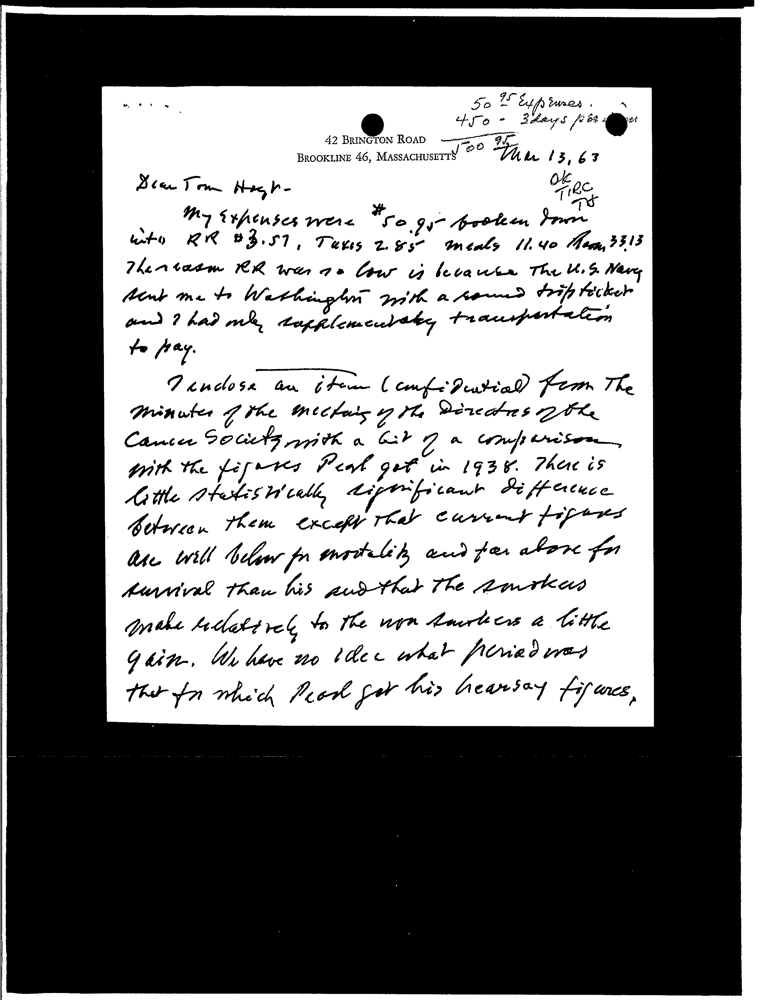 50 95 Expenses.
450 - 3 days per
500 95
42 BRINGTON ROAD
BROOKLINE 46, MASSACHUSETTS
Mar 13, 63
OK
TIRC
Dear Tom Hoyt -
My Expenses were $50.95 broken down
into RR $3.57, Taxis 2.85 meals 11.40 Room 33.13
The reason RR was so low is because The U.S. Navy
sent me to Washington with a round trip ticket
and I had only supplementary transportation
to pay.
I enclose an item (confidential) from The
minutes of the meeting of the Directors of the
Cancer Society with a bit of a comparison
with the figures Pearl got in 1938. There is
little statistically significant difference
between them except that current figures
are well below for mortality and far above for
survival than his and that the smokers
make relatively to the non smokers a little
gain. We have no idea what period was
that for which Pearl got his hearsay figures,